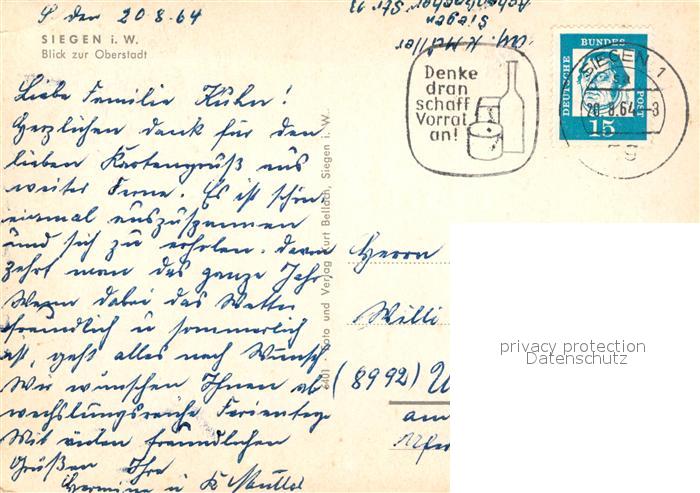 S den 20 8. 64
SIEGEN i. W.
Blick zur Oberstadt
Liebe Familie Kühn!
Herzlichen dank für den
lieben Kartengruß aus
weiter Ferne. Es ist schön
einmal auszuspannen
und sich zu erholen. davon
zehrt man das ganze Jahr.
Wenn dabei das Wetter
freundlich u sommerlich
ist, geht alles nach Wunsch
Wir wünschen Ihnen ab
wechslungsreiche Ferientage
Mit vielen freundlichen
Grüßen Ihre
Hermine u K Müller
6401 · Foto und Verlag Kurt Bellach, Siegen i. W.
K. Müller
Siegen
Str
Denke
dran
schaff
Vorrat
an!
DEUTSCHE
BUNDES
POST
15
SIEGEN 1
20.8.64-3
Herrn
Willi
(8992)
am
privacy protection
Datenschutz